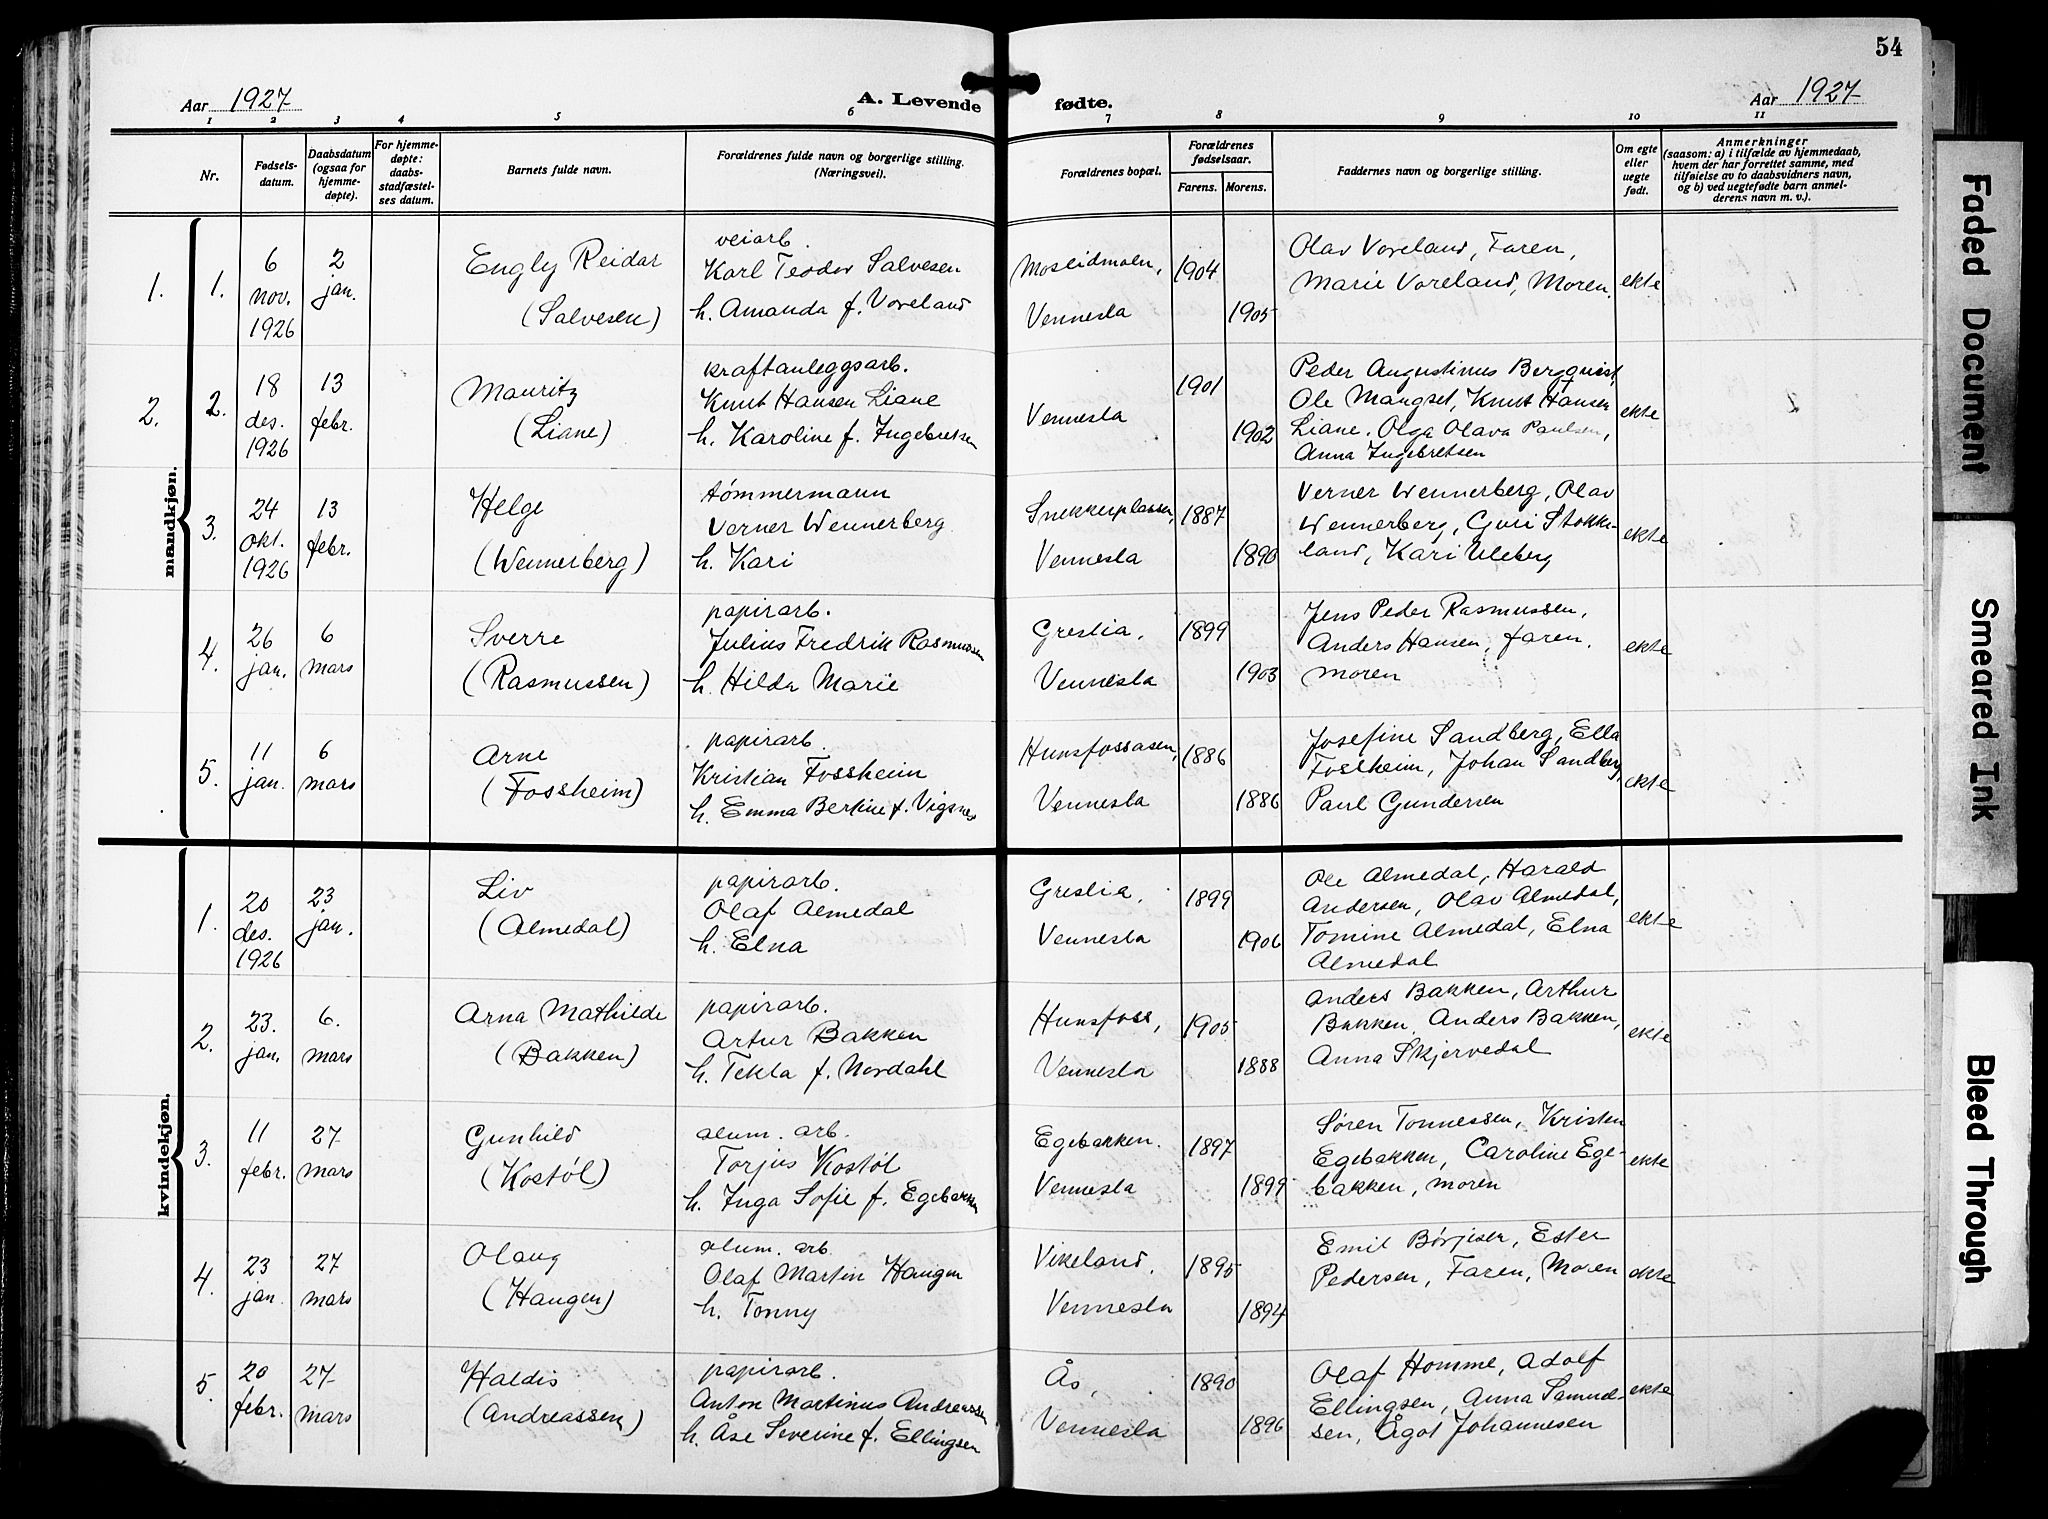 54
Aar 1927 A. Levende fødte. Aar 1927
1 2 3 4 5 6 7 8 9 10 11
Nr.
Fødsels-
datum.
Daabsdatum
(ogsaa for
hjemme-
døpte).
For hjemme-
døpte:
daabs-
stadfæstel-
ses datum.
Barnets fulde navn.
Forældrenes fulde navn og borgerlige stilling.
(Næringsvei).
Forældrenes bopæl.
Forældrenes
fødselsaar.
Farens. Morens.
Faddernes navn og borgerlige stilling.
Om egte
eller
uegte
født.
Anmerkninger
(saasom: a) i tilfælde av hjemmedaab,
hvem der har forrettet samme, med
tilføielse av to daabsvidners navn,
og b) ved uegtefødte barn anmel-
derens navn m. v.).
mandkjøn.
1. 1.
6
nov.
1926
2
jan.
Engly Reidar
(Salvesen)
veiarb.
Karl Teodor Salvesen
h. Amanda f. Voreland
Moslidmoen,
Vennesla
1904
1905
Olav Voreland, Faren,
Marie Voreland, Moren.
ekte
2. 2.
18
des.
1926
13
febr.
Mauritz
(Liane)
kraftanleggsarb.
Knut Hansen Liane
h. Karoline f. Ingebretsen
Vennesla
1901
1902
Peder Augustinus Bergquist,
Ole Mangset, Knut Hansen
Liane, Olga Olava Paulsen,
Anna Ingebretsen
ekte
3.
24
okt.
1926
13
febr.
Helge
(Wennerberg)
tømmermann
Verner Wennerberg
h. Kari
Snekkerplassen,
Vennesla
1887
1890
Verner Wennerberg, Olav
Wennerberg, Guri Stokke-
land, Kari Uleberg
ekte
4.
26
jan.
6
mars
Sverre
(Rasmussen)
papirarb.
Julius Fredrik Rasmussen
h. Hilda Marie
Greslia,
Vennesla
1899
1903
Jens Peder Rasmussen,
Anders Hansen, faren,
moren
ekte
5.
11
jan.
6
mars
Arne
(Fossheim)
papirarb.
Kristian Fossheim
h. Emma Bertine f. Vigsnes
Hunsfossåsen,
Vennesla
1886
1886
Josefine Sandberg, Ella
Fossheim, Johan Sandberg,
Paul Gundersen
ekte
kvindekjøn.
1.
20
des.
1926
23
jan.
Liv
(Almedal)
papirarb.
Olaf Almedal
h. Elna
Greslia,
Vennesla
1899
1906
Ole Almedal, Harald
Andersen, Olav Almedal,
Tomine Almedal, Elna
Almedal
ekte
2.
23.
jan.
6.
mars
Arna Mathilde
(Bakken)
papirarb.
Artur Bakken
h. Tekla f. Nordahl
Hunsfoss,
Vennesla
1905
1888
Anders Bakken, Arthur
Bakken, Anders Bakken,
Anna Skjervedal
ekte
3.
11
febr.
27
mars
Gunhild
(Kostøl)
alum. arb.
Torjus Kostøl
h. Inga Sofie f. Egebakken
Egebakken.
Vennesla
1897
1899
Søren Tonnessen, Kristen
Egebakken, Caroline Ege-
bakken, moren
ekte
4.
23
jan.
27
mars
Olaug
(Haugen)
alum. arb.
Olaf Martin Haugen
h. Tonny
Vikeland,
Vennesla
1895
1894
Emil Børjesen, Ester
Pedersen, Faren, Moren
ekte
5.
20
febr.
27
mars
Haldis
(Andreassen)
papirarb.
Anton Martinus Andreassen
h. Åse Severine f. Ellingsen
Ås,
Vennesla
1890
1896
Olaf Homme, Adolf
Ellingsen, Anna Samuel-
sen, Ågot Johannesen
ekte
Faded Document
Smeared Ink
Bleed Through